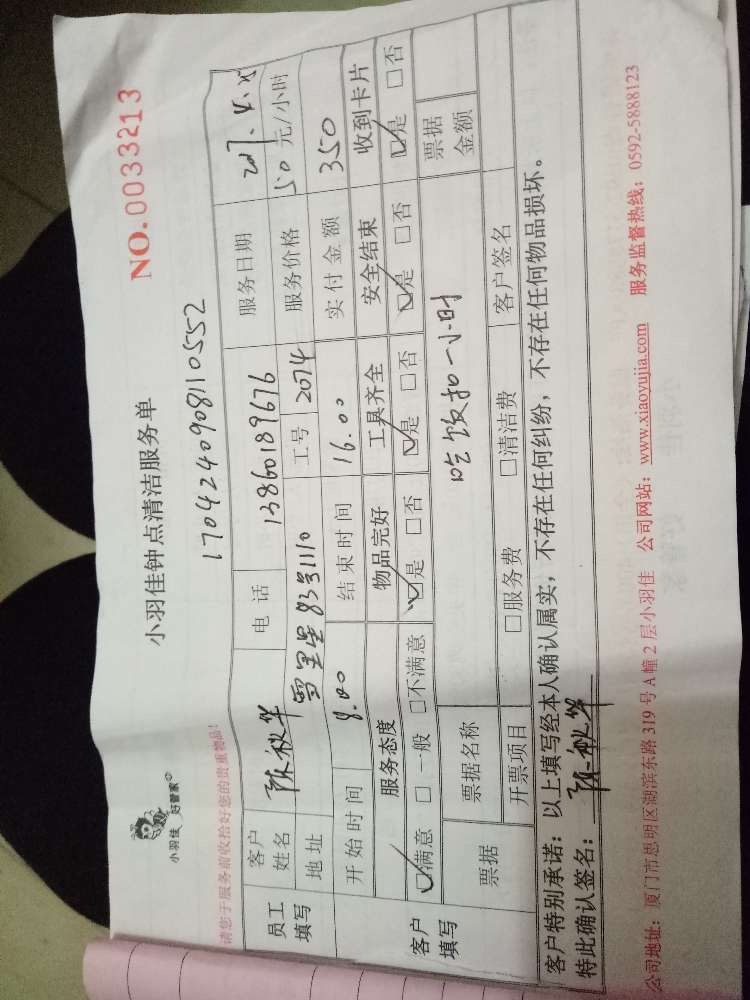 小羽佳 好管家
小羽佳钟点清洁服务单
NO.0033213
请您于服务前收拾好您的贵重物品!
170424090811 0552
员工填写 客户姓名 陈秋华 电话 13860189676 服务日期
地址 83号1110 工号 2074 服务价格 50元/小时
开始时间 8.00 结束时间 16.00 实付金额 350
客户填写 服务态度 物品完好 工具齐全 安全结束 收到卡片
☑满意 □一般 □不满意 ☑是 □否 ☑是 □否 ☑是 □否 ☑是 □否
票据 票据名称 吃饭扣一小时 票据金额
开票项目 □服务费 □清洁费 客户签名
客户特别承诺：以上填写经本人确认属实，不存在任何纠纷，不存在任何物品损坏。
特此确认签名：陈秋华
公司地址：厦门市思明区湖滨东路319号A幢2层小羽佳 公司网站：www.xiaoyujia.com 服务监督热线：0592-5888123